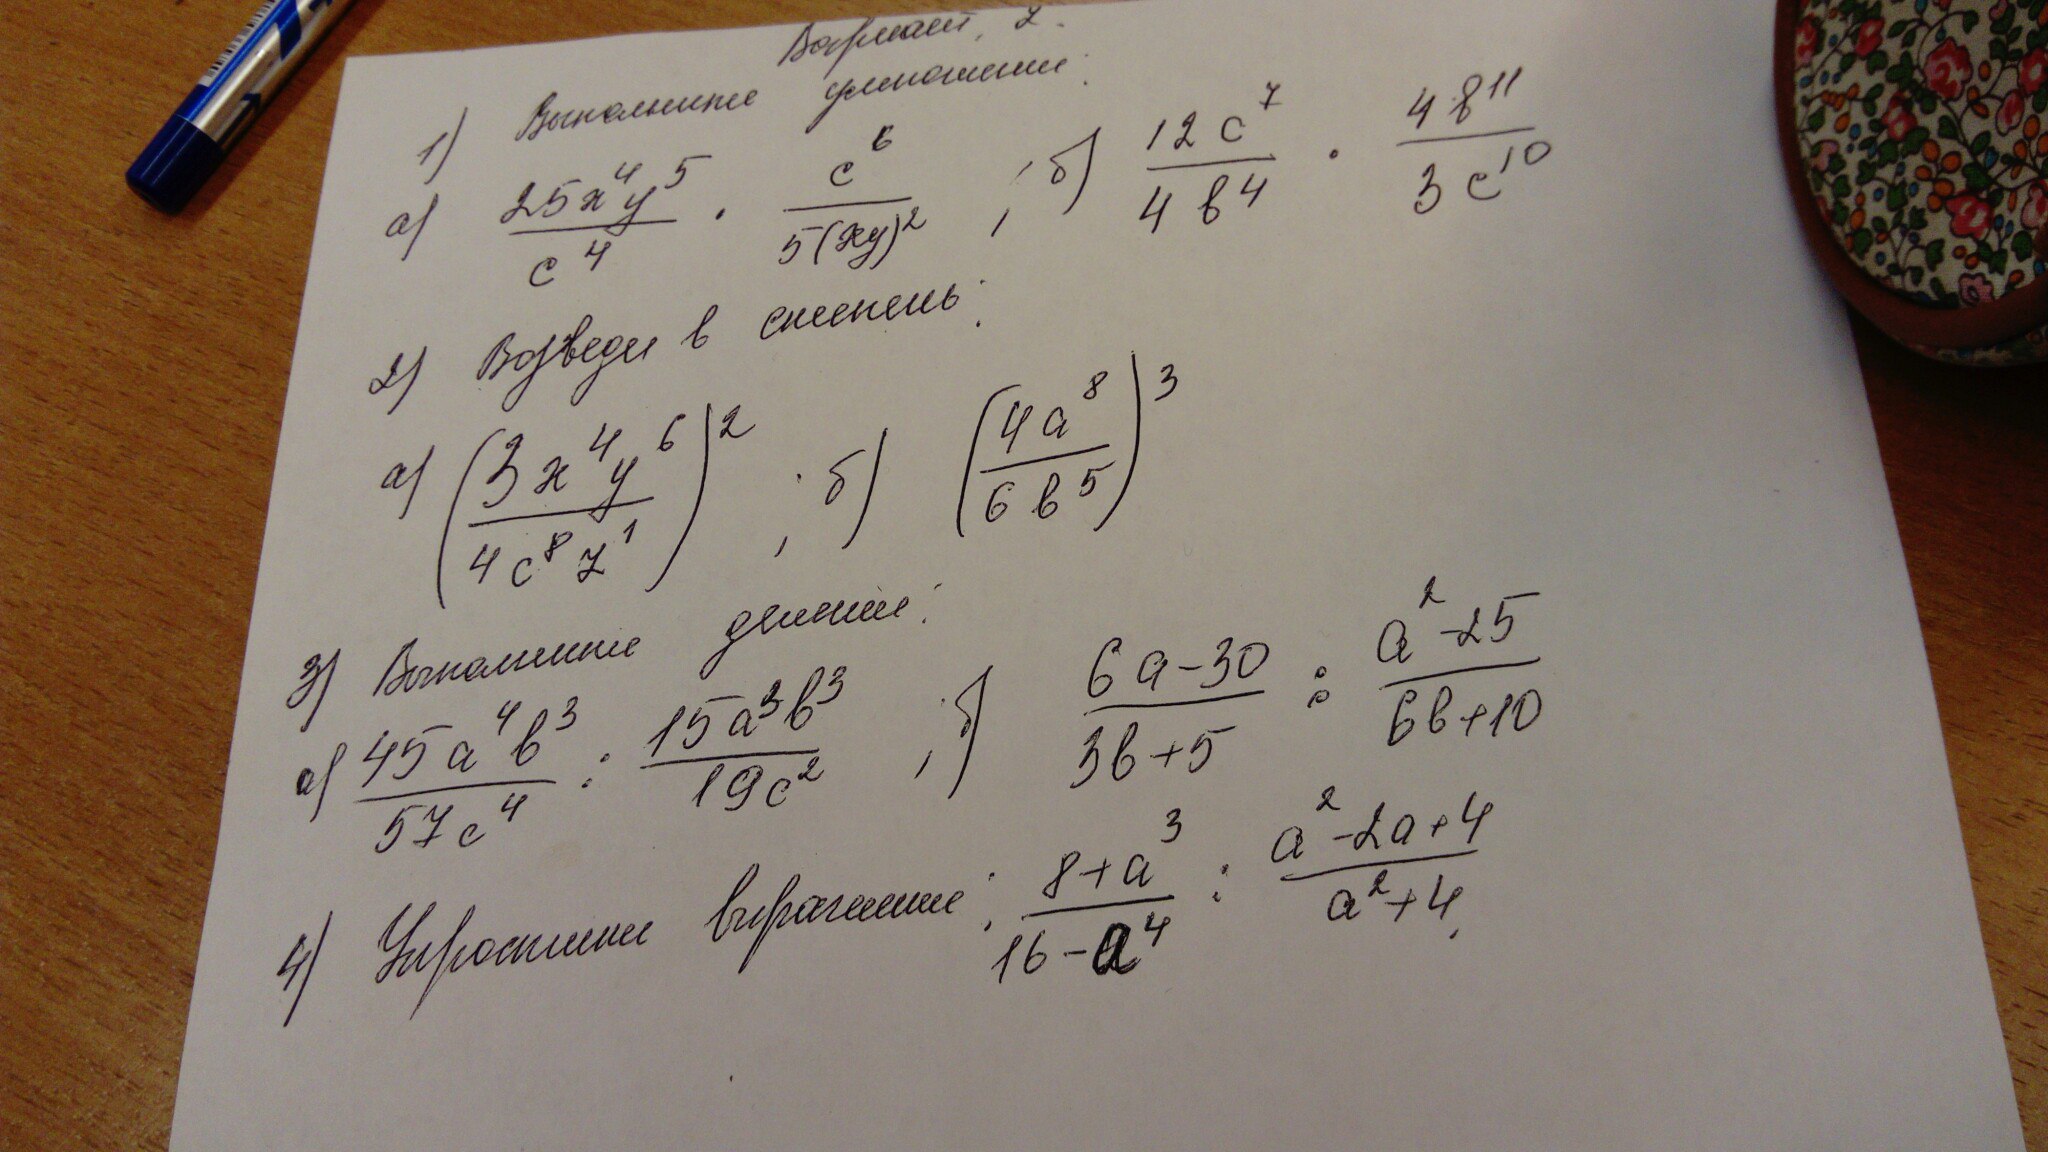 Вариант 2.
1) Выполните умножение:
а) 25x⁴y⁵/c⁴ · c⁶/5(xy)² ; б) 12c⁷/4b⁴ · 4b¹¹/3c¹⁰
2) Возведи в степень:
а) (3x⁴y⁶/4c⁸z¹)² ; б) (4a⁸/6b⁵)³
3) Выполните деление:
а) 45a⁴b³/57c⁴ : 15a³b³/19c² ; б) 6a-30/3b+5 : a²-25/6b+10
4) Упростите выражение: 8+a³/16-a⁴ : a²-2a+4/a²+4.